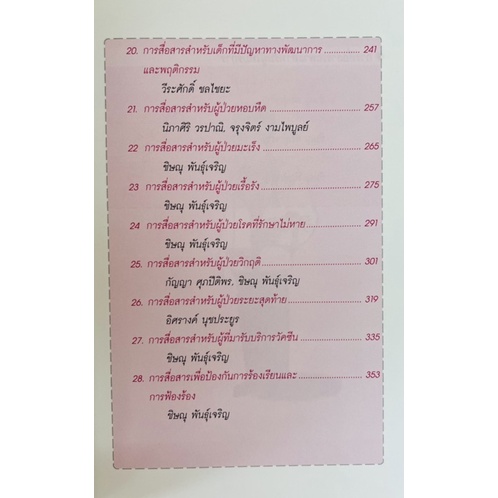 20. การสื่อสารสำหรับเด็กที่มีปัญหาทางพัฒนาการ ............... 241
และพฤติกรรม
วีระศักดิ์ ชลไชยะ
21. การสื่อสารสำหรับผู้ป่วยหอบหืด ............................... 257
นิภาศิริ วรปาณิ, จรุงจิตร์ งามไพบูลย์
22 การสื่อสารสำหรับผู้ป่วยมะเร็ง ................................. 265
ชิษณุ พันธุ์เจริญ
23 การสื่อสารสำหรับผู้ป่วยเรื้อรัง ................................. 275
ชิษณุ พันธุ์เจริญ
24 การสื่อสารสำหรับผู้ป่วยโรคที่รักษาไม่หาย .................. 291
ชิษณุ พันธุ์เจริญ
25. การสื่อสารสำหรับผู้ป่วยวิกฤติ ................................. 301
กัญญา ศุภปีติพร, ชิษณุ พันธุ์เจริญ
26. การสื่อสารสำหรับผู้ป่วยระยะสุดท้าย .......................... 319
อิศรางค์ นุชประยูร
27. การสื่อสารสำหรับผู้ที่มารับบริการวัคซีน ...................... 335
ชิษณุ พันธุ์เจริญ
28. การสื่อสารเพื่อป้องกันการร้องเรียนและ ....................... 353
การฟ้องร้อง
ชิษณุ พันธุ์เจริญ